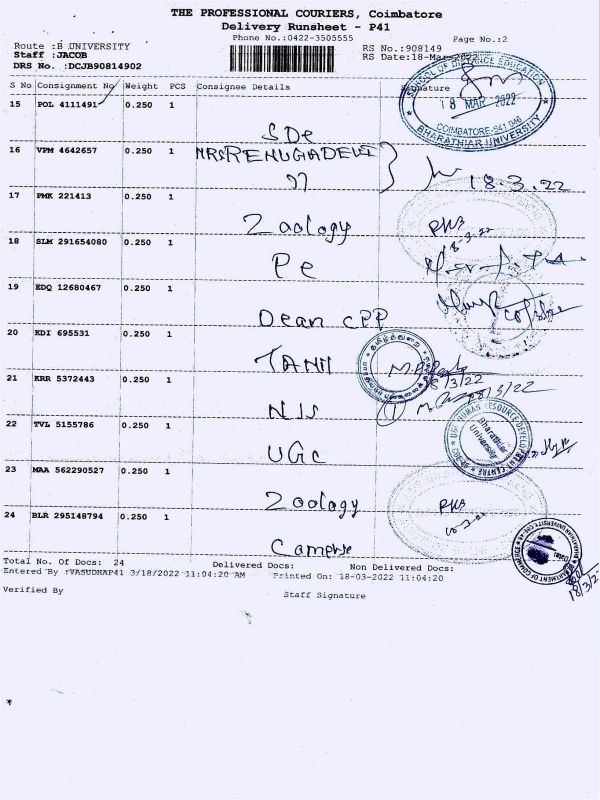 THE PROFESSIONAL COURIERS, Coimbatore
Delivery Runsheet - P41
Phone No.:0422-3505555
Page No.:2
Route :B UNIVERSITY
Staff :JACOB
DRS No. :DCJB90814902
RS No.:908149
RS Date:18-Mar-2022
S No Consignment No Weight PCS Consignee Details Signature
SCHOOL OF DISTANCE EDUCATION
18 MAR 2022
COIMBATORE-641 046
BHARATHIAR UNIVERSITY
15 POL 4111491 0.250 1 SDe
16 VPM 4642657 0.250 1 MRS RENUGADEVI
18.3.22
17 PMK 221413 0.250 1 Zoology
18-3-22
18 SLM 291654080 0.250 1 Pe
19 EDQ 12680467 0.250 1 Dean CPP
20 KDI 695531 0.250 1 TAMIL
18/3/22
21 KRR 5372443 0.250 1 NSS
18/3/22
22 TVL 5155786 0.250 1 UGC
UGC-HUMAN RESOURCE DEVELOPMENT CENTRE
Bharathiar University
23 MAA 562290527 0.250 1 Zoology
24 BLR 295148794 0.250 1 Commerce
DEPARTMENT OF COMMERCE
18/3/22
Total No. Of Docs: 24 Delivered Docs: Non Delivered Docs:
Entered By :VASUDHAP41 3/18/2022 11:04:20 AM Printed On: 18-03-2022 11:04:20
Verified By
Staff Signature